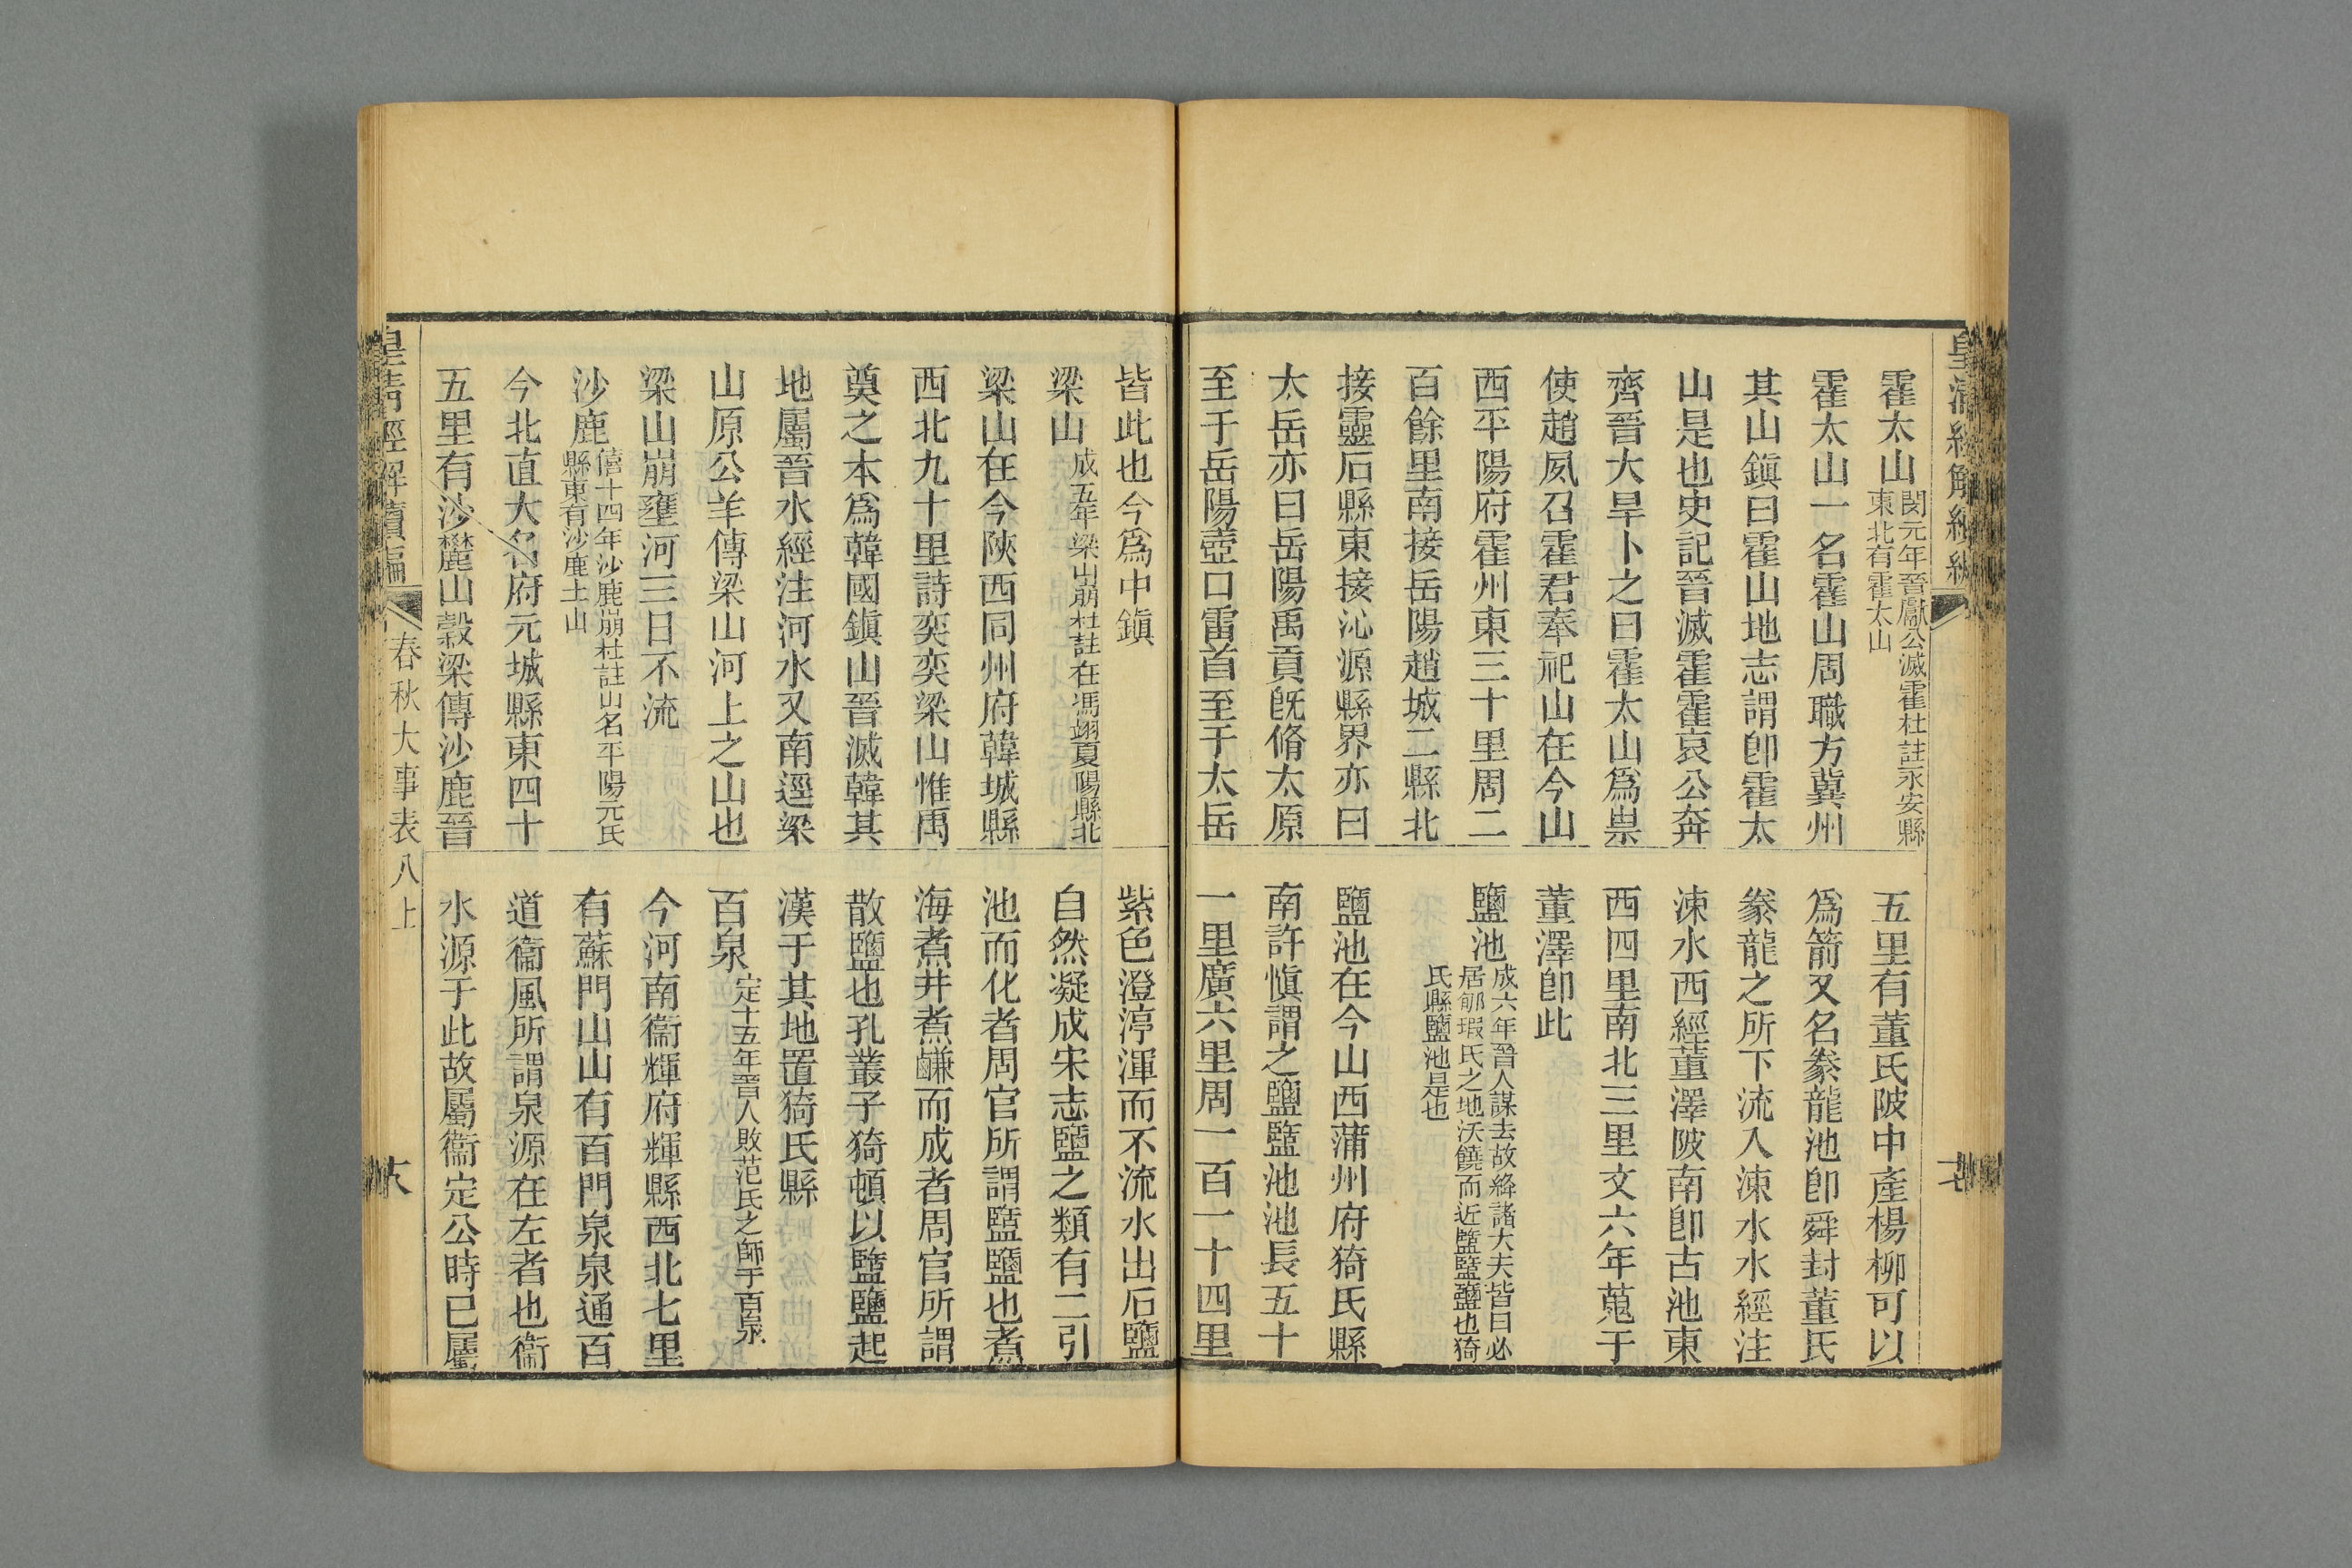 皇清經解續編
霍太山
閔元年晉獻公滅霍杜註永安縣
東北有霍太山
霍太山一名霍山周職方冀州
其山鎮曰霍山地志謂卽霍太
山是也史記晉滅霍霍哀公奔
齊晉大旱卜之曰霍太山爲祟
使趙夙召霍君奉祀山在今山
西平陽府霍州東三十里周二
百餘里南接岳陽趙城二縣北
接靈石縣東接沁源縣界亦曰
太岳亦曰岳陽禹貢既脩太原
至于岳陽壺口雷首至于太岳
五里有董氏陂中產楊柳可以
爲箭又名豢龍池卽舜封董氏
豢龍之所下流入涑水水經注
涑水西經董澤陂南卽古池東
西四里南北三里文六年蒐于
董澤卽此
鹽池
成六年晉人謀去故絳諸大夫皆曰必
居郇瑕氏之地沃饒而近盬盬鹽也猗
氏縣鹽池是也
鹽池在今山西蒲州府猗氏縣
南許慎謂之鹽盬池池長五十
一里廣六里周一百一十四里
皆此也今爲中鎮
梁山
成五年梁山崩杜註在馮翊夏陽縣北
梁山在今陝西同州府韓城縣
西北九十里詩奕奕梁山惟禹
奠之本爲韓國鎮山晉滅韓其
地屬晉水經注河水又南逕梁
山原公羊傳梁山河上之山也
梁山崩壅河三日不流
沙鹿
僖十四年沙鹿崩杜註山名平陽元氏
縣東有沙鹿土山
今北直大名府元城縣東四十
五里有沙麓山穀梁傳沙鹿晉
紫色澄渟渾而不流水出石鹽
自然凝成宋志鹽之類有二引
池而化者周官所謂盬鹽也煮
海煮井煮鹻而成者周官所謂
散鹽也孔叢子猗頓以盬鹽起
漢于其地置猗氏縣
百泉
定十五年晉人敗范氏之師于百泉
今河南衞輝府輝縣西北七里
有蘇門山山有百門泉泉通百
道衞風所謂泉源在左者也衞
水源于此故屬衞定公時已屬
皇清經解續編
春秋大事表八上